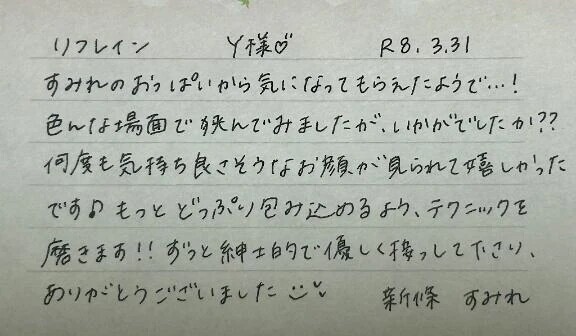 リフレイン Y様♡ R8.3.31
すみれのおっぱいから気になってもらえたようで…!
色んな場面で挟んでみましたが、いかがでしたか??
何度も気持ち良さそうなお顔が見られて嬉しかった
です♪もっとどっぷり包み込めるよう、テクニックを
磨きます!!ずっと紳士的で優しく接っして下さり、
ありがとうございました
新條 すみれ